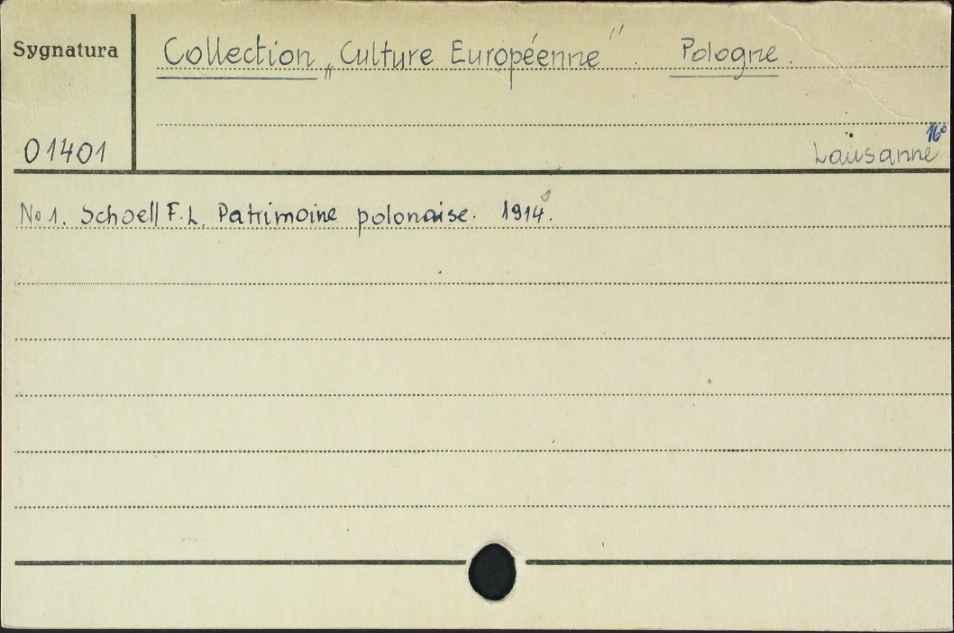 Sygnatura
Collection „Culture Européenne". Pologne.
01401
16°
Lausanne
No 1. Schoell F.L. Patrimoine polonaise. 1914.